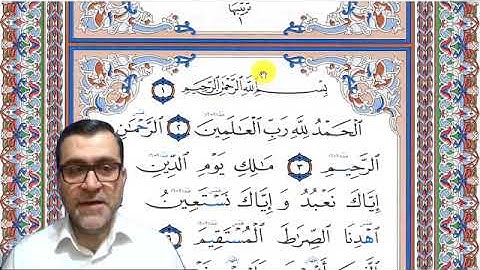 ترتيبها
١
بِسْمِ ٱللَّهِ ٱلرَّحْمَٰنِ ٱلرَّحِيمِ ١
ٱلْحَمْدُ لِلَّهِ رَبِّ ٱلْعَالَمِينَ ٢ ٱلرَّحْمَٰنِ
ٱلرَّحِيمِ ٣ مَالِكِ يَوْمِ ٱلدِّينِ
إِيَّاكَ نَعْبُدُ وَ إِيَّاكَ نَسْتَعِينُ
ٱهْدِنَا ٱلصِّرَاطَ ٱلْمُسْتَقِيمَ ٦